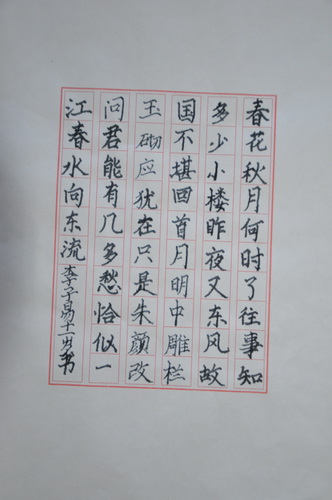 春花秋月何时了往事知
多少小楼昨夜又东风故
国不堪回首月明中雕栏
玉砌应犹在只是朱颜改
问君能有几多愁恰似一
江春水向东流 李子易十一岁书